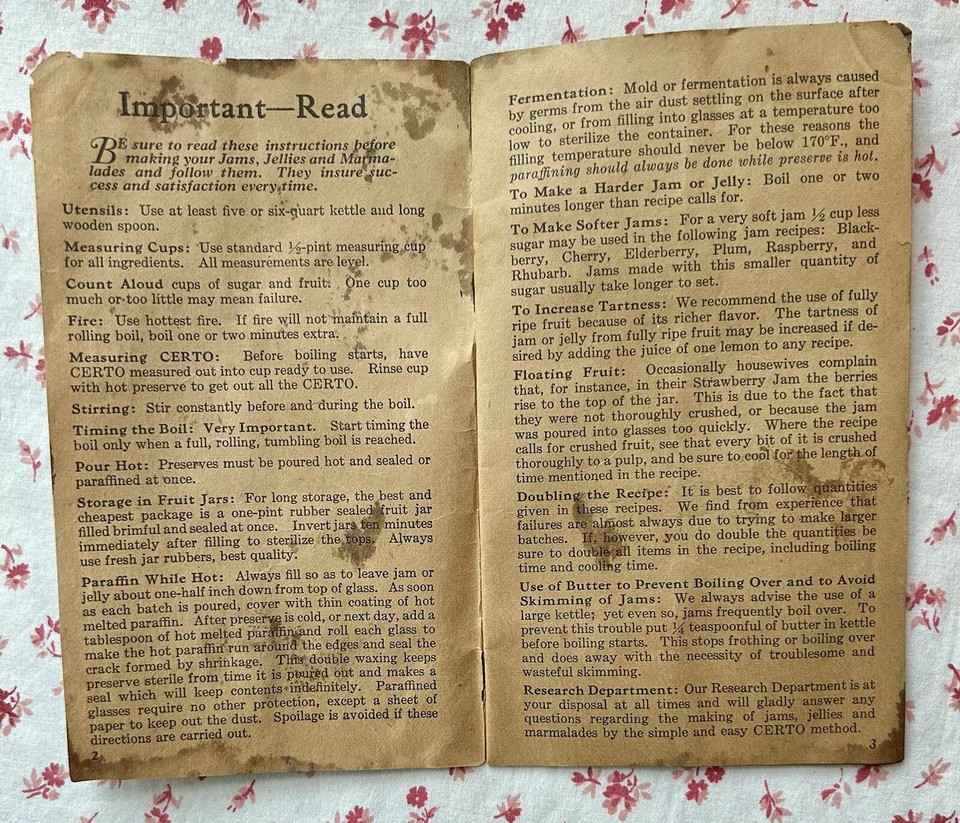 Important—Read
BE sure to read these instructions before
making your Jams, Jellies and Marma-
lades and follow them. They insure suc-
cess and satisfaction every time.
Utensils: Use at least five or six-quart kettle and long
wooden spoon.
Measuring Cups: Use standard ½-pint measuring cup
for all ingredients. All measurements are level.
Count Aloud cups of sugar and fruit. One cup too
much or too little may mean failure.
Fire: Use hottest fire. If fire will not maintain a full
rolling boil, boil one or two minutes extra.
Measuring CERTO: Before boiling starts, have
CERTO measured out into cup ready to use. Rinse cup
with hot preserve to get out all the CERTO.
Stirring: Stir constantly before and during the boil.
Timing the Boil: Very Important. Start timing the
boil only when a full, rolling, tumbling boil is reached.
Pour Hot: Preserves must be poured hot and sealed or
paraffined at once.
Storage in Fruit Jars: For long storage, the best and
cheapest package is a one-pint rubber sealed fruit jar
filled brimful and sealed at once. Invert jars ten minutes
immediately after filling to sterilize the tops. Always
use fresh jar rubbers, best quality.
Paraffin While Hot: Always fill so as to leave jam or
jelly about one-half inch down from top of glass. As soon
as each batch is poured, cover with thin coating of hot
melted paraffin. After preserve is cold, or next day, add a
tablespoon of hot melted paraffin and roll each glass to
make the hot paraffin run around the edges and seal the
crack formed by shrinkage. This double waxing keeps
preserve sterile from time it is poured out and makes a
seal which will keep contents indefinitely. Paraffined
glasses require no other protection, except a sheet of
paper to keep out the dust. Spoilage is avoided if these
directions are carried out.
2
Fermentation: Mold or fermentation is always caused
by germs from the air dust settling on the surface after
cooling, or from filling into glasses at a temperature too
low to sterilize the container. For these reasons the
filling temperature should never be below 170°F., and
paraffining should always be done while preserve is hot.
To Make a Harder Jam or Jelly: Boil one or two
minutes longer than recipe calls for.
To Make Softer Jams: For a very soft jam ½ cup less
sugar may be used in the following jam recipes: Black-
berry, Cherry, Elderberry, Plum, Raspberry, and
Rhubarb. Jams made with this smaller quantity of
sugar usually take longer to set.
To Increase Tartness: We recommend the use of fully
ripe fruit because of its richer flavor. The tartness of
jam or jelly from fully ripe fruit may be increased if de-
sired by adding the juice of one lemon to any recipe.
Floating Fruit: Occasionally housewives complain
that, for instance, in their Strawberry Jam the berries
rise to the top of the jar. This is due to the fact that
they were not thoroughly crushed, or because the jam
was poured into glasses too quickly. Where the recipe
calls for crushed fruit, see that every bit of it is crushed
thoroughly to a pulp, and be sure to cool for the length of
time mentioned in the recipe.
Doubling the Recipe: It is best to follow quantities
given in these recipes. We find from experience that
failures are almost always due to trying to make larger
batches. If, however, you do double the quantities be
sure to double all items in the recipe, including boiling
time and cooling time.
Use of Butter to Prevent Boiling Over and to Avoid
Skimming of Jams: We always advise the use of a
large kettle; yet even so, jams frequently boil over. To
prevent this trouble put ¼ teaspoonful of butter in kettle
before boiling starts. This stops frothing or boiling over
and does away with the necessity of troublesome and
wasteful skimming.
Research Department: Our Research Department is at
your disposal at all times and will gladly answer any
questions regarding the making of jams, jellies and
marmalades by the simple and easy CERTO method.
3